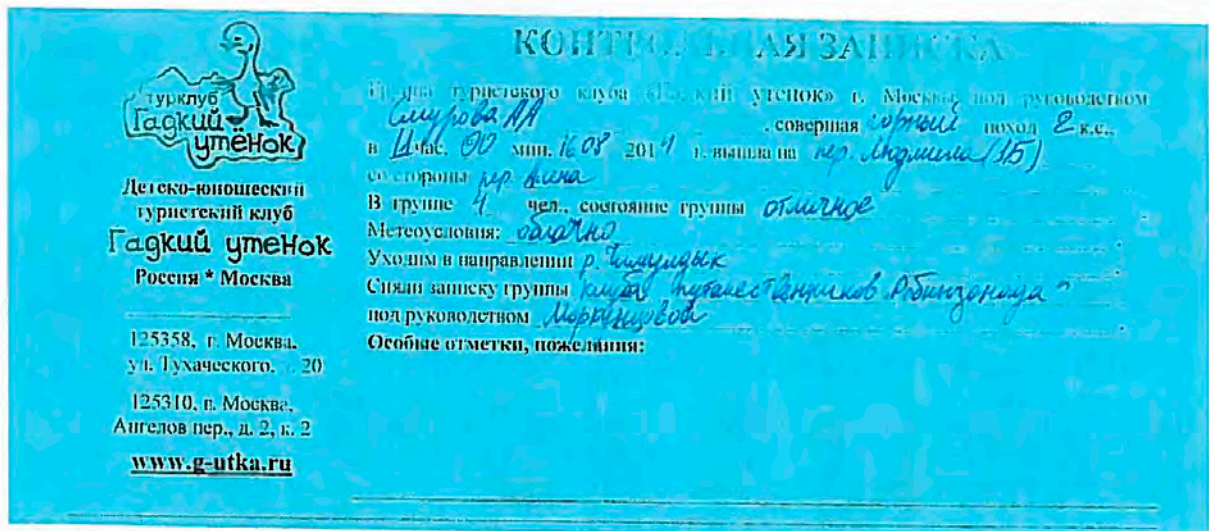 турклуб
Гадкий
утёнок
Детско-юношеский
туристский клуб
Гадкий утенок
Россия * Москва
125358, г. Москва,
ул. Тухаческого, 20
125310, г. Москва,
Ангелов пер., д. 2, к. 2
www.g-utka.ru
КОНТРОЛЬНАЯ ЗАПИСКА
Группа туристского клуба «Гадкий утенок» г. Москвы под руководством
Смурова АА , совершая горный поход 2 к.с.,
в 11 час. 00 мин. 16 08 2014 г. вышла на пер. Людмила (1Б)
со стороны пер. Анна
В группе 4 чел., состояние группы отличное
Метеоусловия: облачно
Уходим в направлении р.
Сняли записку группы клуба путешественников "Робинзонада"
под руководством
Особые отметки, пожелания: